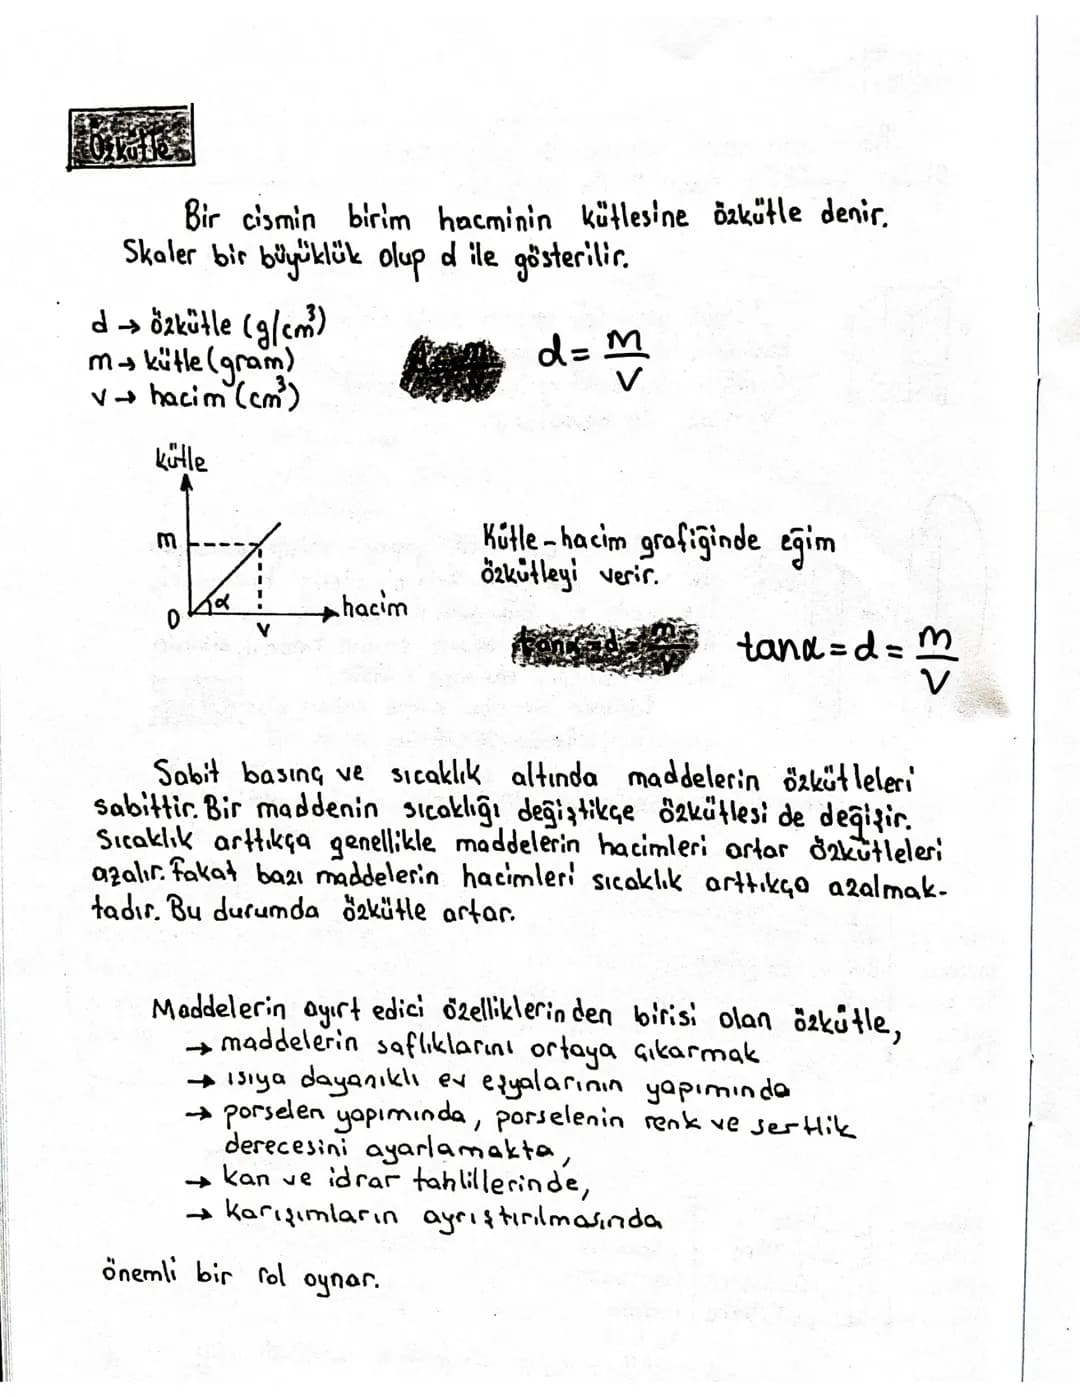 Özkütle
Bir cismin birim hacminin kütlesine özkütle denir.
Skaler bir büyüklük olup d ile gösterilir.
d → özkütle (g/cm³)
m → kütle (gram)
v → hacim (cm³)
d = m/v
kütle
m
0
α
v
hacim
Kütle - hacim grafiğinde eğim
özkütleyi verir.
tanα = d = m/v
tanα = d = m/v
Sabit basınç ve sıcaklık altında maddelerin özkütleleri
sabittir. Bir maddenin sıcaklığı değiştikçe özkütlesi de değişir.
Sıcaklık arttıkça genellikle maddelerin hacimleri artar özkütleleri
azalır. Fakat bazı maddelerin hacimleri sıcaklık arttıkça azalmak-
tadır. Bu durumda özkütle artar.
Maddelerin ayırt edici özelliklerinden birisi olan özkütle,
→ maddelerin saflıklarını ortaya çıkarmak
→ ısıya dayanıklı ev eşyalarının yapımında
→ porselen yapımında, porselenin renk ve sertlik
derecesini ayarlamakta,
→ kan ve idrar tahlillerinde,
→ karışımların ayrıştırılmasında
önemli bir rol oynar.